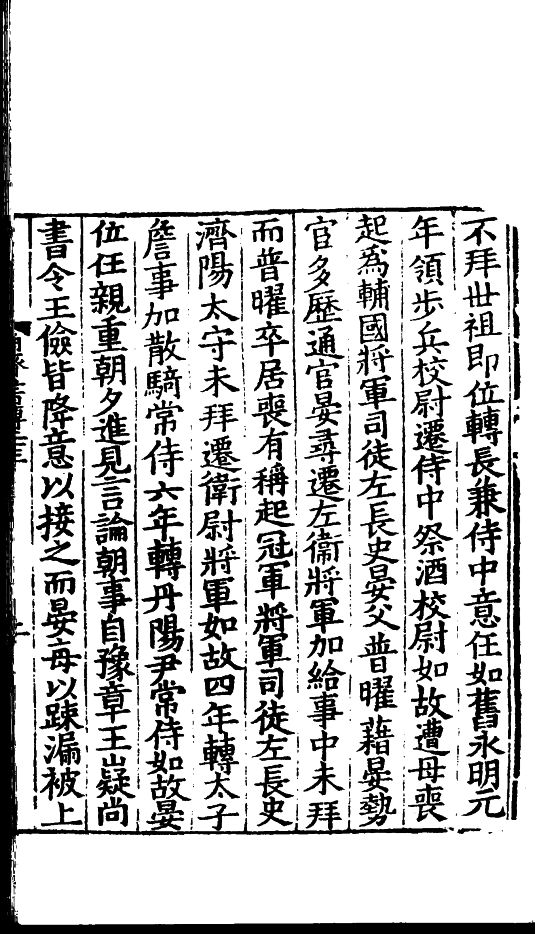 不拜世祖即位轉長兼侍中意任如舊永明元
年領步兵校尉遷侍中祭酒校尉如故遭母喪
起為輔國將軍司徒左長史晏父普曜藉晏勢
官多歷通官晏尋遷左衞將軍加給事中未拜
而普曜卒居喪有稱起冠軍將軍司徒左長史
濟陽太守未拜遷衞尉將軍如故四年轉太子
詹事加散騎常侍六年轉丹陽尹常侍如故晏
位任親重朝夕進見言論朝事自豫章王嶷尚
書令王儉皆降意以接之而晏每以疎漏被上